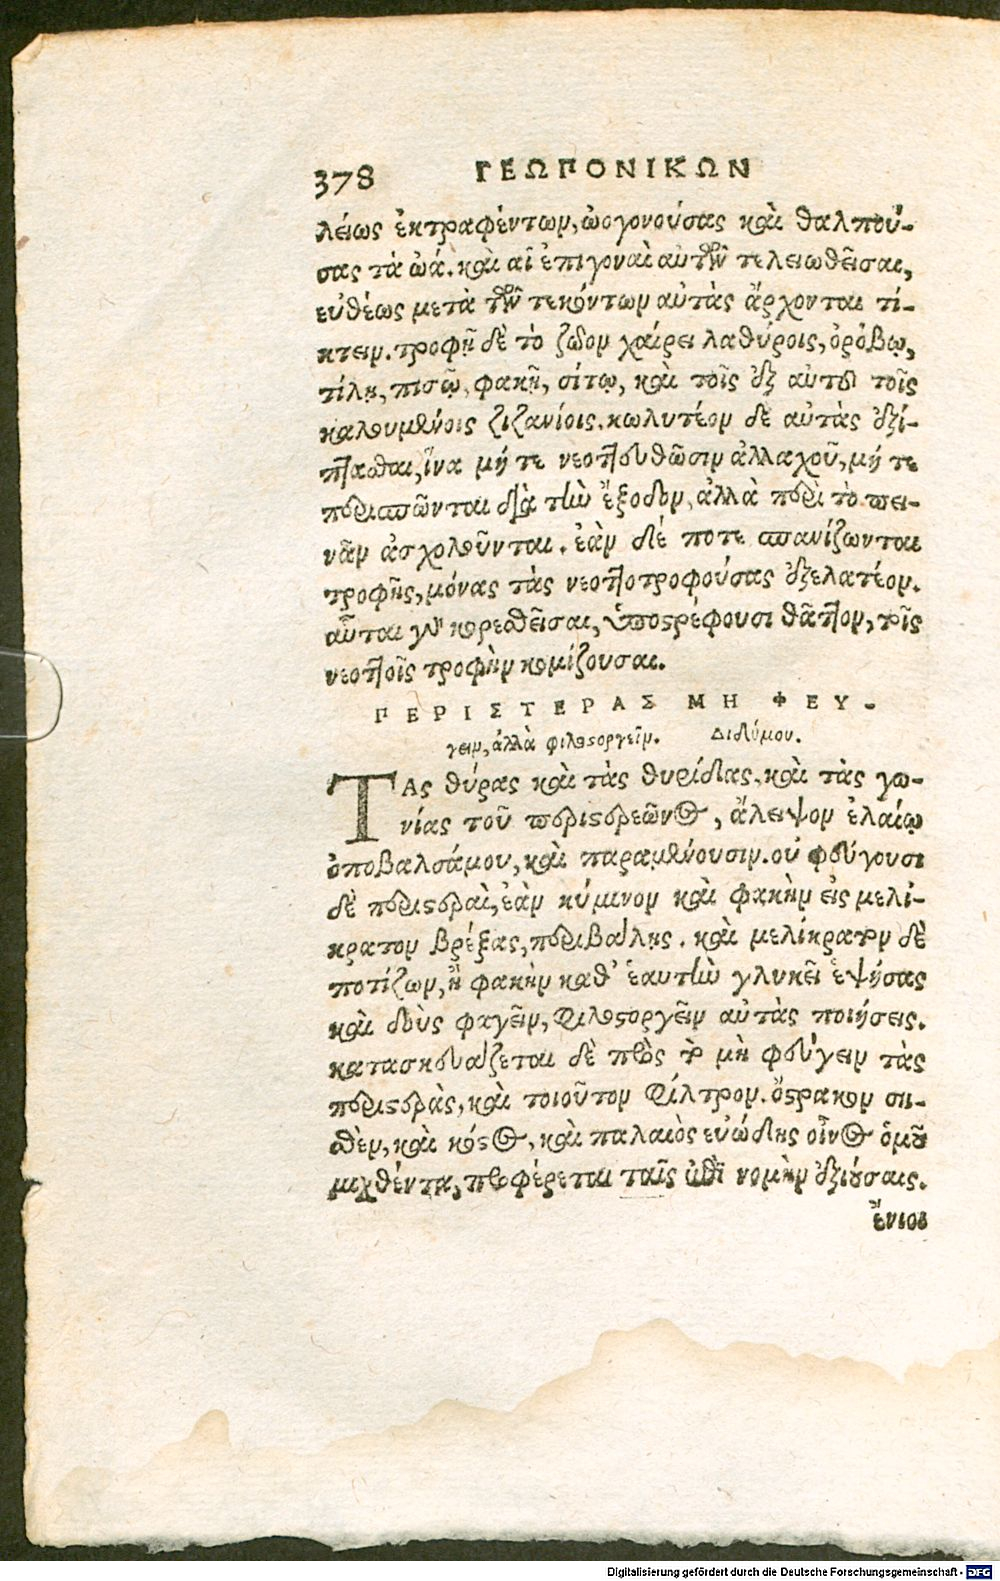 378 ΓΕΩΠΟΝΙΚΩΝ
λέως ἐκτραφέντων, ὠογονούσας καὶ θαλπού-
σας τὰ ὠά. καὶ αἱ ἐπιγοναὶ αὐτῶν τελειωθεῖσαι,
εὐθέως μετὰ τῶν τεκόντων αὐτὰς ἄρχονται τί-
κτειν. τροφῇ δὲ τὸ ζῶον χαίρει λαθύροις, ὀρόβῳ,
τίλῃ, πισῷ, φακῇ, σίτῳ, καὶ τοῖς ἐξ αὐτοῦ τοῖς
καλουμένοις ζιζανίοις. κωλυτέον δὲ αὐτὰς ἐξί-
πτασθαι, ἵνα μή τε νεοττουθῶσιν ἀλλαχοῦ, μή τε
περισπῶνται διὰ τὴν ἔξοδον, ἀλλὰ περὶ τὸ πει-
νᾶν ἀσχολοῦνται. ἐὰν δέ ποτε σπανίζωνται
τροφῆς, μόνας τὰς νεοττοτροφούσας ἐξελατέον.
αὗται γὰρ κορεσθεῖσαι, ὑποστρέφουσι θᾶττον, τοῖς
νεοττοῖς τροφὴν κομίζουσαι.
ΠΕΡΙΣΤΕΡΑΣ ΜΗ ΦΕΥ-
γειν, ἀλλὰ φιλοστοργεῖν. Διδύμου.
ΤΑς θύρας καὶ τὰς θυρίδας, καὶ τὰς γω-
νίας τοῦ περιστερεῶνος, ἄλειψον ἐλαίῳ
ὀποβαλσάμου, καὶ παραμένουσιν. οὐ φεύγουσι
δὲ περιστεραὶ, ἐὰν κύμινον καὶ φακὴν εἰς μελί-
κρατον βρέξας, περιβάλῃς. καὶ μελίκρατον δὲ
ποτίζων, ἢ φακὴν καθ’ ἑαυτὴν γλυκεῖ ἑψήσας
καὶ δοὺς φαγεῖν, φιλοστοργεῖν αὐτὰς ποιήσεις.
κατασκευάζεται δὲ πρὸς τὸ μὴ φεύγειν τὰς
περιστερὰς, καὶ τοιοῦτον φίλτρον. ὄστρακον ση-
σθὲν, καὶ κόστος, καὶ παλαιὸς εὐώδης οἶνος ὁμοῦ
μιχθέντα, προφέρεται ταῖς ἐπὶ νομὴν ἐξιούσαις.
ἔνιοι
Digitalisierung gefördert durch die Deutsche Forschungsgemeinschaft - DFG